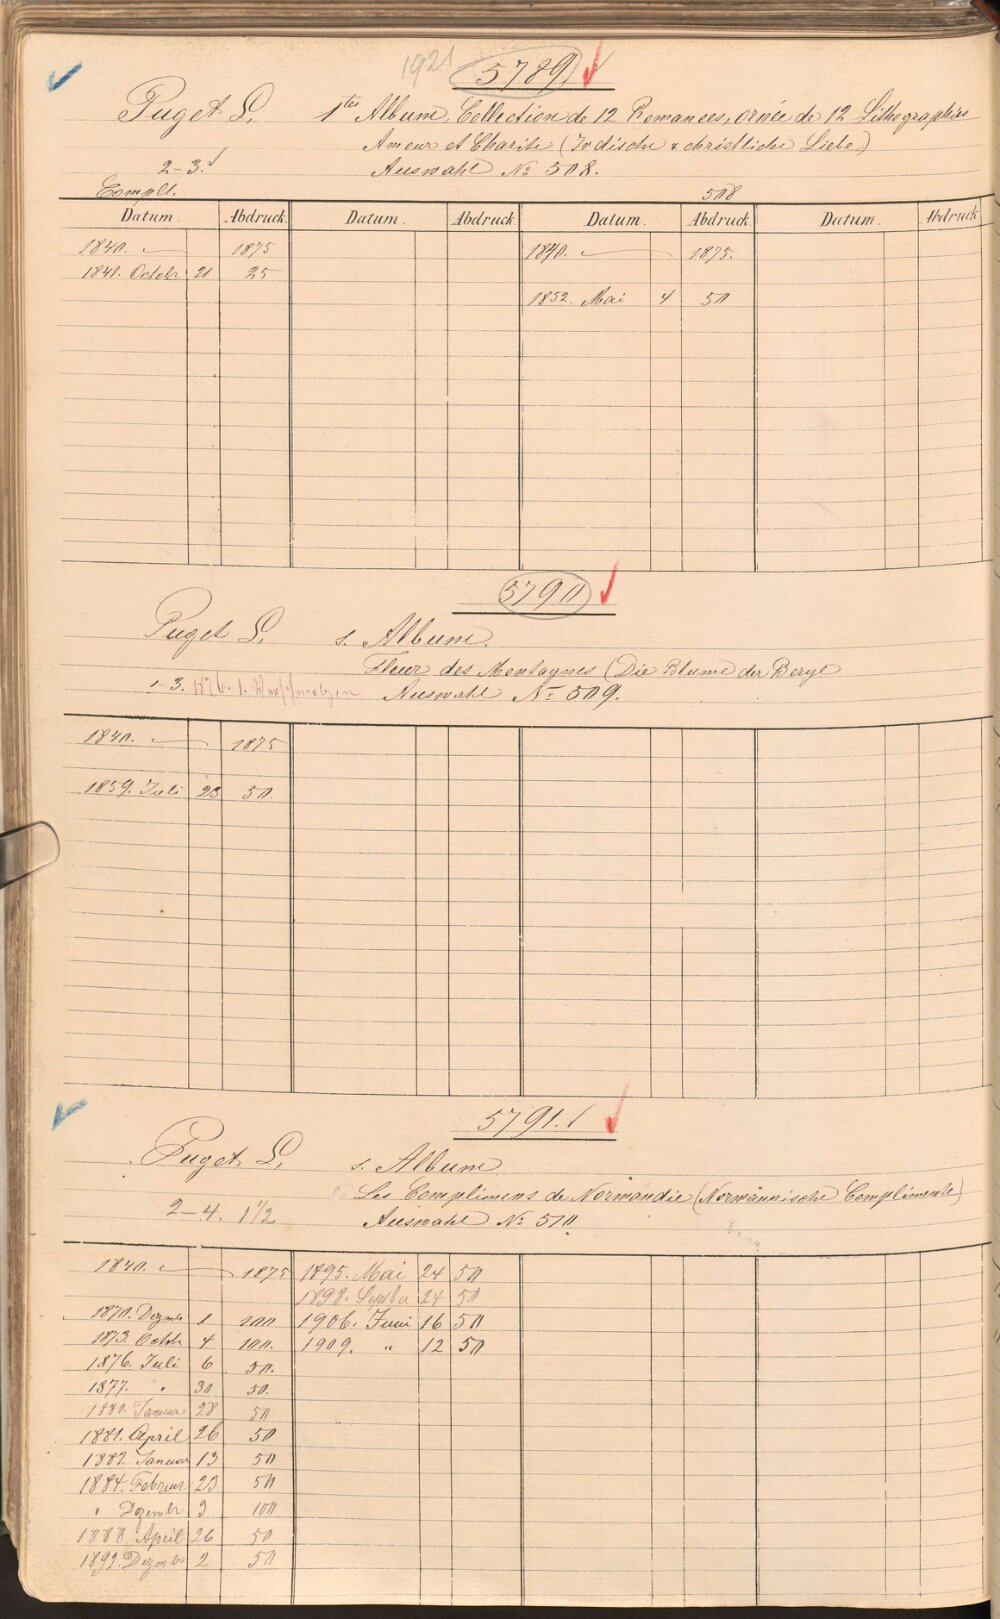 1921 5789.
Puget L. 1tes Album, Collection de 12 Romances, ornée de 12 Lithographies
Amour et Charité (Irdische & christliche Liebe)
2-3. Auswahl No 508.
Complt. 508
Datum. Abdruck. Datum. Abdruck. Datum. Abdruck. Datum. Abdruck.
1840. 1875 1840. 1875.
1841. Octobr 21 25
1852. Mai 4 50
5790
Puget L. s. Album.
Fleur des Montagnes (Die Blume der Berge
1-3. 1876. 1. Auswahl No 509.
1840. 1875
1859. Juli 23 50.
5791.
Puget L. s. Album
Les Complimens de Normandie (Normännische Complimente)
2-4. 1 1/2 Auswahl No 510
1840. 1875 1895. Mai 24 50
1898. Septbr 24 50
1870. Dezmbr 1 100 1906. Juni 16 50
1873. Octobr 4 100. 1909. " 12 50
1876. Juli 6 50.
1877. " 30 50.
1880. Januar 28 50
1881. April 26 50
1882 Januar 13 50
1884. Februar 23 50
" Dezembr 3 100
1888 April 26 50
1892. Dezmbr 2 50